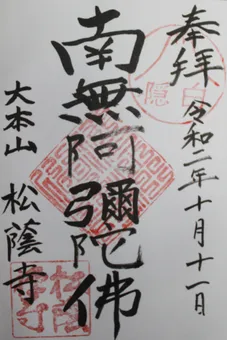 奉拝
令和二年十月十一日
白隠
南無阿彌陀佛
大本山 松蔭寺